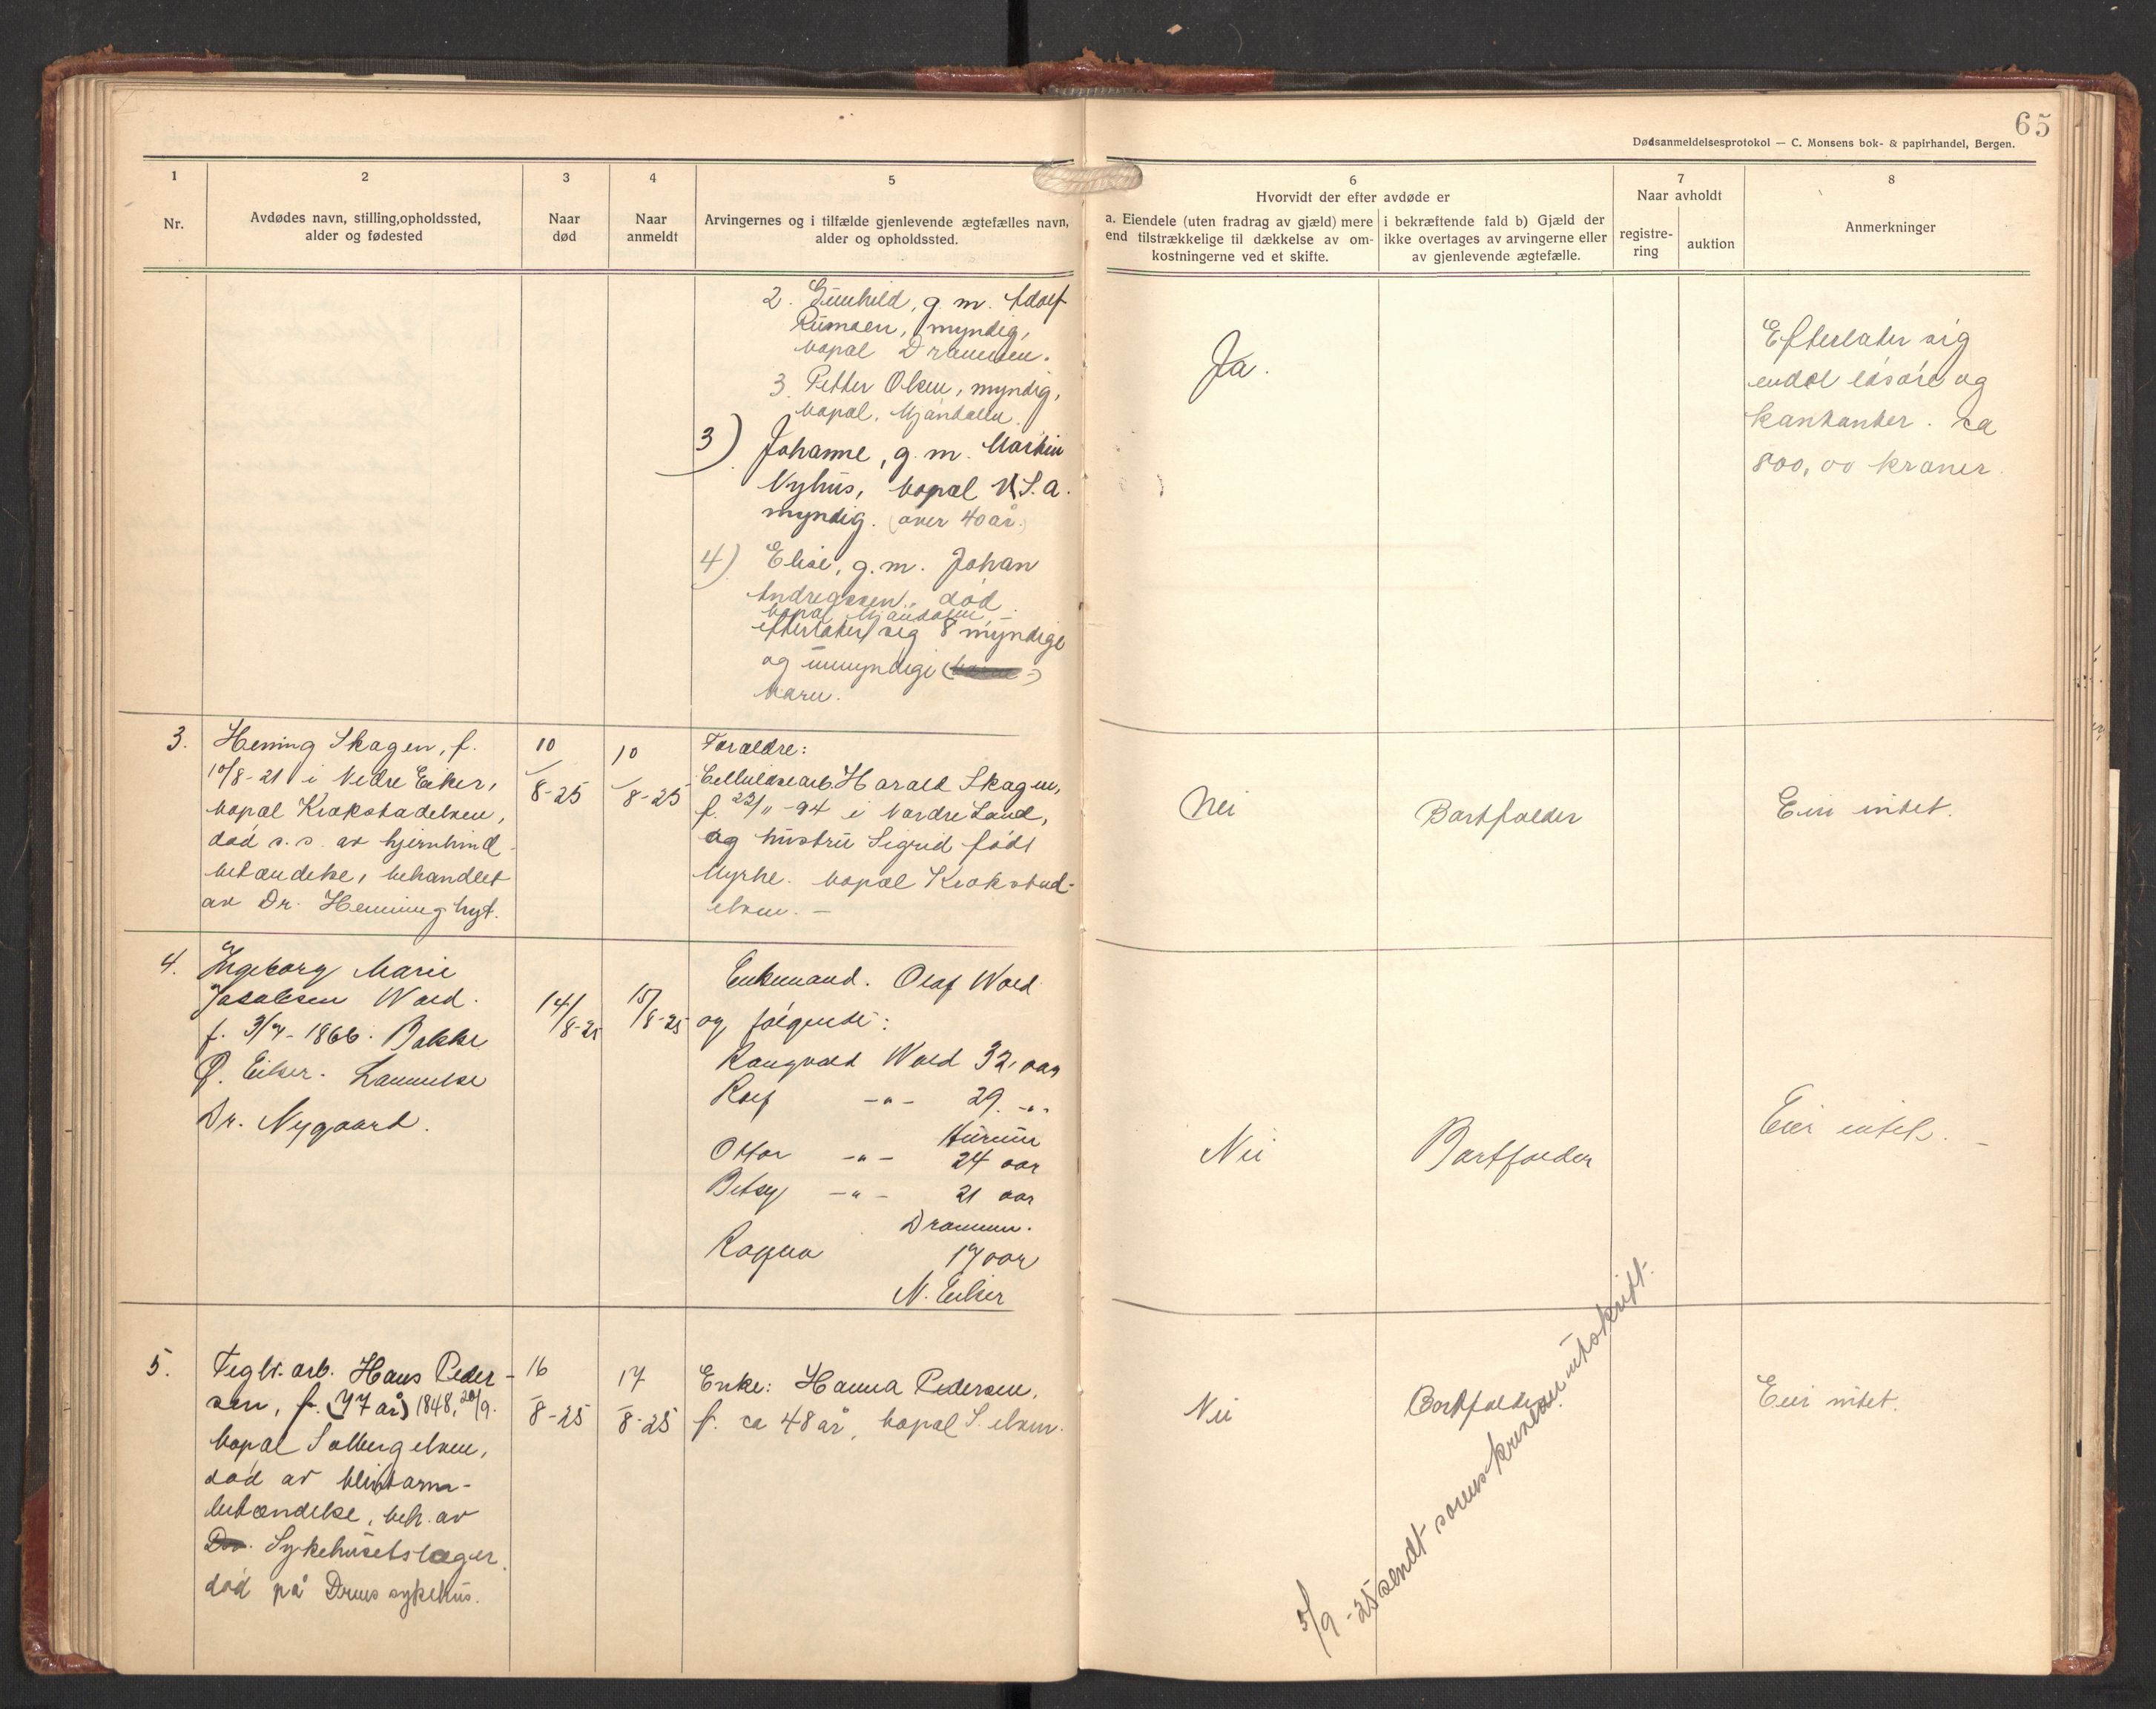 65
Dødsanmeldelsesprotokol — C. Monsens bok- & papirhandel, Bergen.
1
Nr.
2
Avdødes navn, stilling, opholdssted,
alder og fødested
3
Naar
død
4
Naar
anmeldt
5
Arvingernes og i tilfælde gjenlevende ægtefælles navn,
alder og opholdssted.
6
Hvorvidt der efter avdøde er
a. Eiendele (uten fradrag av gjæld) mere
end tilstrækkelige til dækkelse av om-
kostningerne ved et skifte.
i bekræftende fald b) Gjæld der
ikke overtages av arvingerne eller
av gjenlevende ægtefælle.
7
Naar avholdt
registre-
ring
auktion
8
Anmerkninger
2. Gunhild, g. m. Adolf
myndig,
bopæl Drammen.
3. Petter Olsen, myndig,
bopæl, Mjøndalen.
3) Johanne, g. m. Martin
Nyhus, bopæl U.S.A.
myndig. (over 40 år.)
4) Elise, g. m. Johan
Andreassen, død
bopæl Mjøndalen,
efterlater sig 8 myndige
og umyndige
barn.
Ja.
Efterlater sig
endel løsøre og
kontanter. ca
800,00 kroner.
3.
Hening Skagen, f.
10/8-21 i Nedre Eiker,
bopæl Krokstadelven,
død s. s. av hjernhind
betændelse, behandlet
av Dr.
10/8-25
10/8-25
Forældre:
Cellulosearb. Harald Skagen,
f. 22/11-94 i Nordre Land,
og hustru Sigrid født
Myrhe. bopæl Krokstad-
elven. —
Nei
Bortfalder
Eier intet.
4.
Ingeborg Marie
Jacobsen Wold.
f. 3/7-1866. Bakke
Ø. Eiker. Lammelse
Dr. Nygaard.
14/8-25
15/8-25
Enkemand. Olaf Wold
og følgende:
Rangvald Wold 32 aar
Rolf —"— 29 —"—
Hurum
Ottar —"— 24 aar
Betsy —"— 21 aar
Drammen.
Ragna 17 aar
N. Eiker
Nei
Bortfalder
Eier intet. —
5.
Teglv. arb. Hans Peder-
sen, f. (77 år) 1848, 20/9.
bopæl Solbergelven,
død av blindtarm-
betændelse, beh. av
Dr. Sykehusets læger.
død på Drms sykehus.
16/8-25
17/8-25
Enke: Hanna Pedersen,
f. ca 48 år, bopæl S. elven.
Nei
Bortfalder.
Eier intet.
5/9-25 sendt sorenskriveren utskrift.